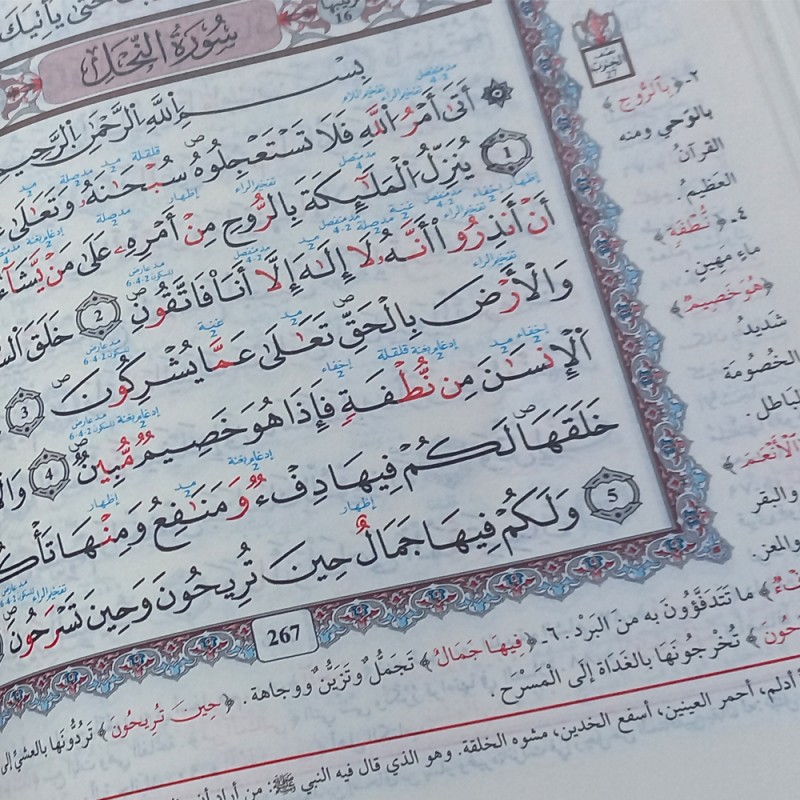 حَتَّىٰ يَأْتِيَكَ
سُورَةُ النَّحْلِ
ترتيبها 16
بِسْمِ اللَّهِ الرَّحْمَٰنِ الرَّحِيمِ
أَتَىٰٓ أَمْرُ اللَّهِ فَلَا تَسْتَعْجِلُوهُ سُبْحَٰنَهُۥ وَتَعَٰلَىٰ
1 يُنَزِّلُ الْمَلَٰٓئِكَةَ بِالرُّوحِ مِنْ أَمْرِهِۦ عَلَىٰ مَن يَشَآءُ
أَنْ أَنذِرُوٓا۟ أَنَّهُۥ لَآ إِلَٰهَ إِلَّآ أَنَا۠ فَاتَّقُونِ 2 خَلَقَ
وَالْأَرْضَ بِالْحَقِّ تَعَٰلَىٰ عَمَّا يُشْرِكُونَ 3
الْإِنسَٰنَ مِن نُّطْفَةٍ فَإِذَا هُوَ خَصِيمٌ مُّبِينٌ 4
خَلَقَهَا لَكُمْ فِيهَا دِفْءٌ وَمَنَٰفِعُ وَمِنْهَا
5 وَلَكُمْ فِيهَا جَمَالٌ حِينَ تُرِيحُونَ وَحِينَ تَسْرَحُونَ
267
٢-﴿بِالرُّوحِ﴾
بالوَحي ومنه
القرآنُ
العظيمُ.
٤-﴿نُّطْفَةٍ﴾
ماءٍ مَهينٍ.
﴿هُوَ خَصِيمٌ﴾
شديدُ
الخُصُومَة
بالباطلِ.
الْأَنْعَٰمَ﴾
والبقر
والمعز.
ما تتَدَفَّؤُونَ به منَ البَرْد. ٦-﴿فِيهَا جَمَالٌ﴾ تَجَمُّلٌ وتَزَيُّنٌ ووجاهة. ﴿حِينَ تُرِيحُونَ﴾ تَرُدُّونَها بالعشيِّ إلى
تُخْرِجُونَها بالغَداة إلى المَسْرَح.
أدلم، أحمر العينين، أسفع الخدين، مشوه الخلقة. وهو الذي قال فيه النبي ﷺ: من أراد أن